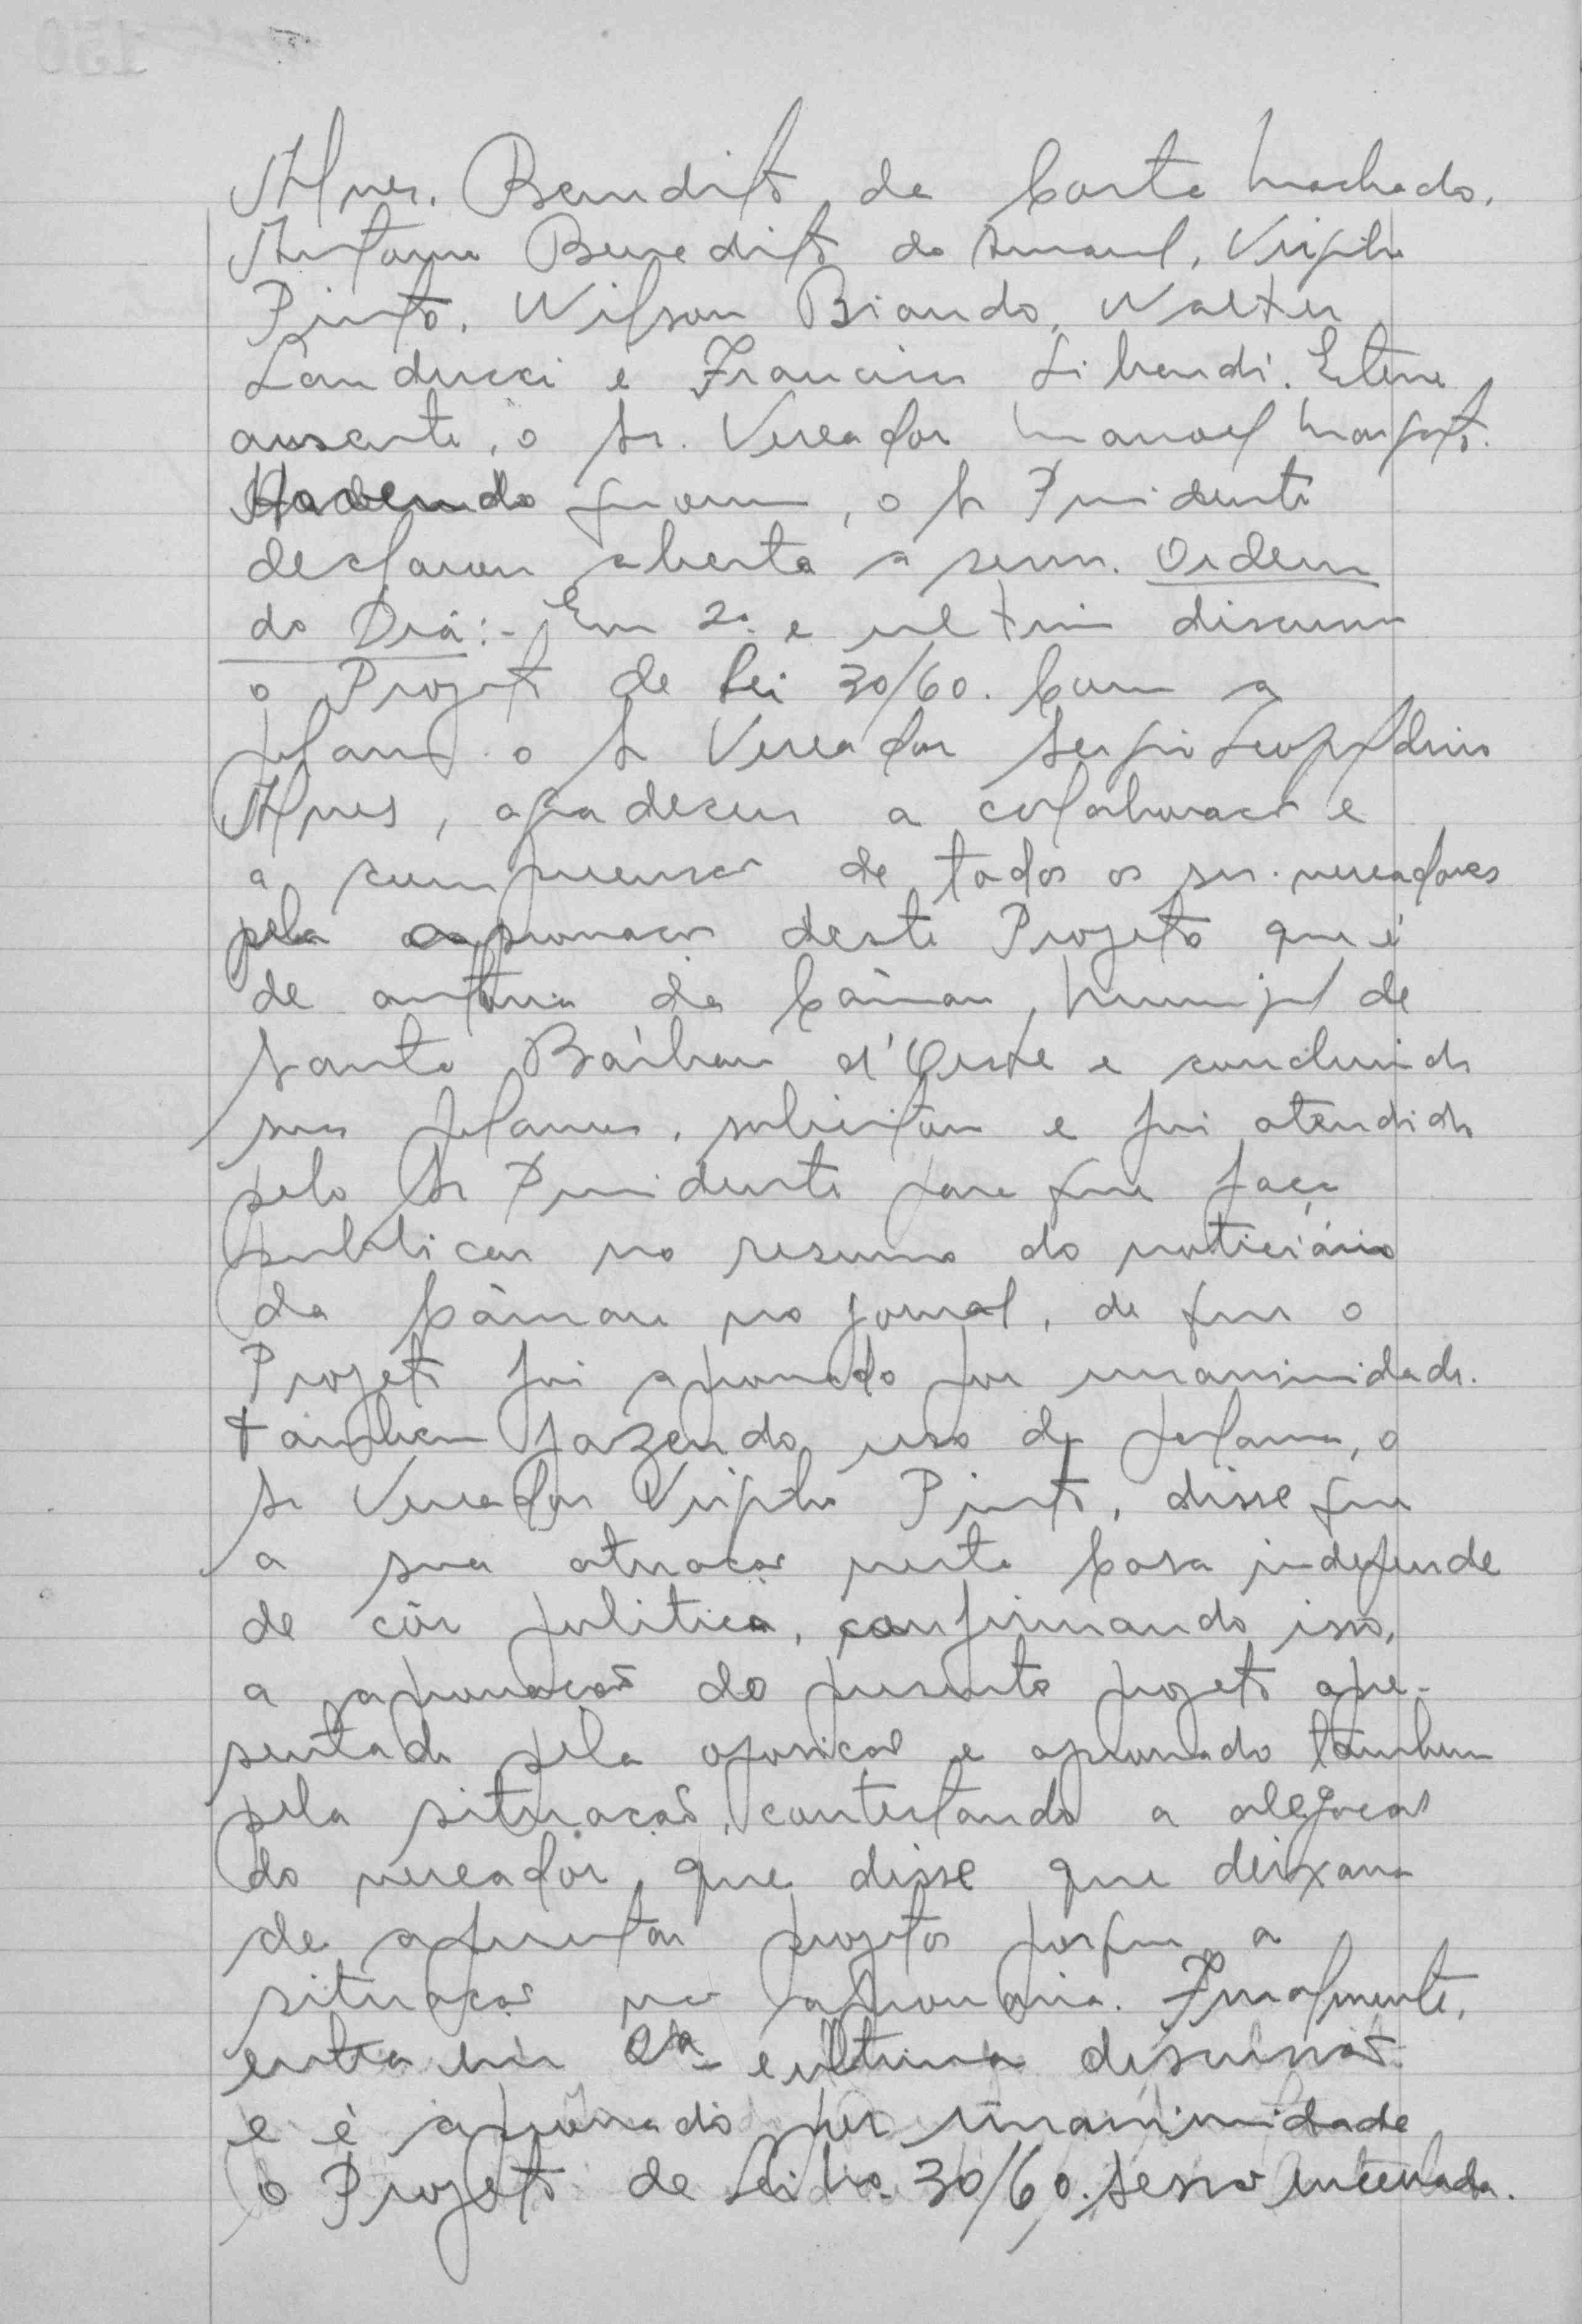 Alves. Benedito da Costa Machado.
Antonio Benedito do Amaral, Virgilio
Pinto. Wilson Biondo, Walter
Landucci e Francisco Libardi. Esteve
ausente, o Sr. Vereador Manoel
Havendo quorum, o Sr Presidente
declarou aberta a sessão. Ordem
do Dia:- Em 2ª e ultima discussão
o Projeto de Lei 30/60. Com a
palavra o Sr Vereador Sergio Leopoldino
Alves, agradeceu a colaboração e
a compreensão de todos os srs. vereadores
pela aprovação deste Projeto que é
de autoria da Câmara Municipal de
Santa Bárbara d'Oeste e concluindo
suas palavras, solicitou e foi atendido
pelo Sr Presidente para que faça
publicar no resumo do noticiário
da Câmara no jornal, de que o
Projeto foi aprovado por unanimidade.
Tambem fazendo uso da palavra, o
Sr Vereador Virgilio Pinto, disse que
a sua atuação nesta Casa independe
de côr politica, confirmando isso,
a aprovação do presente projeto apre-
sentado pela oposição e aprovado tambem
pela situação, contestando a alegação
do vereador que disse que deixava
de apresentar projetos porque a
situação não aprovaria. Finalmente,
entra em 2ª e ultima discussão
e é aprovado por unanimidade
o Projeto de Lei No. 30/60. Sessão encerrada.